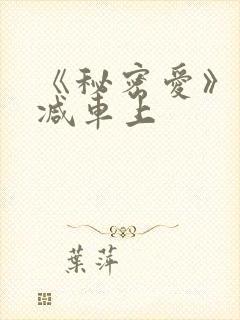 《秘密爱》
减車上
葉萍